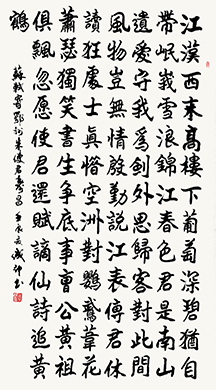 江漢西來高樓下葡萄深碧猶自
帶岷峨雪浪錦江春色君是南山
遺愛守我為劍外思歸客對此間
風物豈無情殷勤說江表傳君休
讀狂處士真惜空洲對鸚鵡葦花
蕭瑟獨笑書生爭底事曹公黃祖
俱飄忽愿使君還賦謫仙詩追黃
鶴
蘇軾寄鄂州朱使君壽昌 壬辰 書